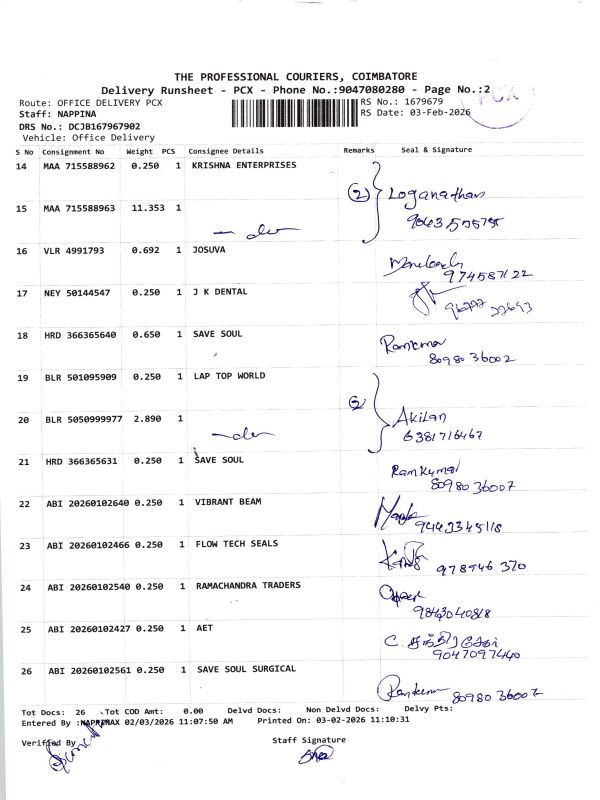 THE PROFESSIONAL COURIERS, COIMBATORE
Delivery Runsheet - PCX - Phone No.:9047080280 - Page No.:2
PCX
Route: OFFICE DELIVERY PCX
RS No.: 1679679
Staff: NAPPINA
RS Date: 03-Feb-2026
DRS No.: DCJB167967902
Vehicle: Office Delivery
S No Consignment No Weight PCS Consignee Details Remarks Seal & Signature
14 MAA 715588962 0.250 1 KRISHNA ENTERPRISES
(2) Loganathan
15 MAA 715588963 11.353 1
16 VLR 4991793 0.692 1 JOSUVA
974587122
17 NEY 50144547 0.250 1 J K DENTAL
18 HRD 366365640 0.650 1 SAVE SOUL
8098036002
19 BLR 501095909 0.250 1 LAP TOP WORLD
(2) Akilan
6381716467
20 BLR 5050999977 2.890 1
21 HRD 366365631 0.250 1 SAVE SOUL
Ramkumar
8098036007
22 ABI 20260102640 0.250 1 VIBRANT BEAM
9443345118
23 ABI 20260102466 0.250 1 FLOW TECH SEALS
978746 370
24 ABI 20260102540 0.250 1 RAMACHANDRA TRADERS
9843040818
25 ABI 20260102427 0.250 1 AET
9047097440
26 ABI 20260102561 0.250 1 SAVE SOUL SURGICAL
8098036002
Tot Docs: 26 Tot COD Amt: 0.00 Delvd Docs: Non Delvd Docs: Delvy Pts:
Entered By :NAPPIMAX 02/03/2026 11:07:50 AM Printed On: 03-02-2026 11:10:31
Verified By
Staff Signature